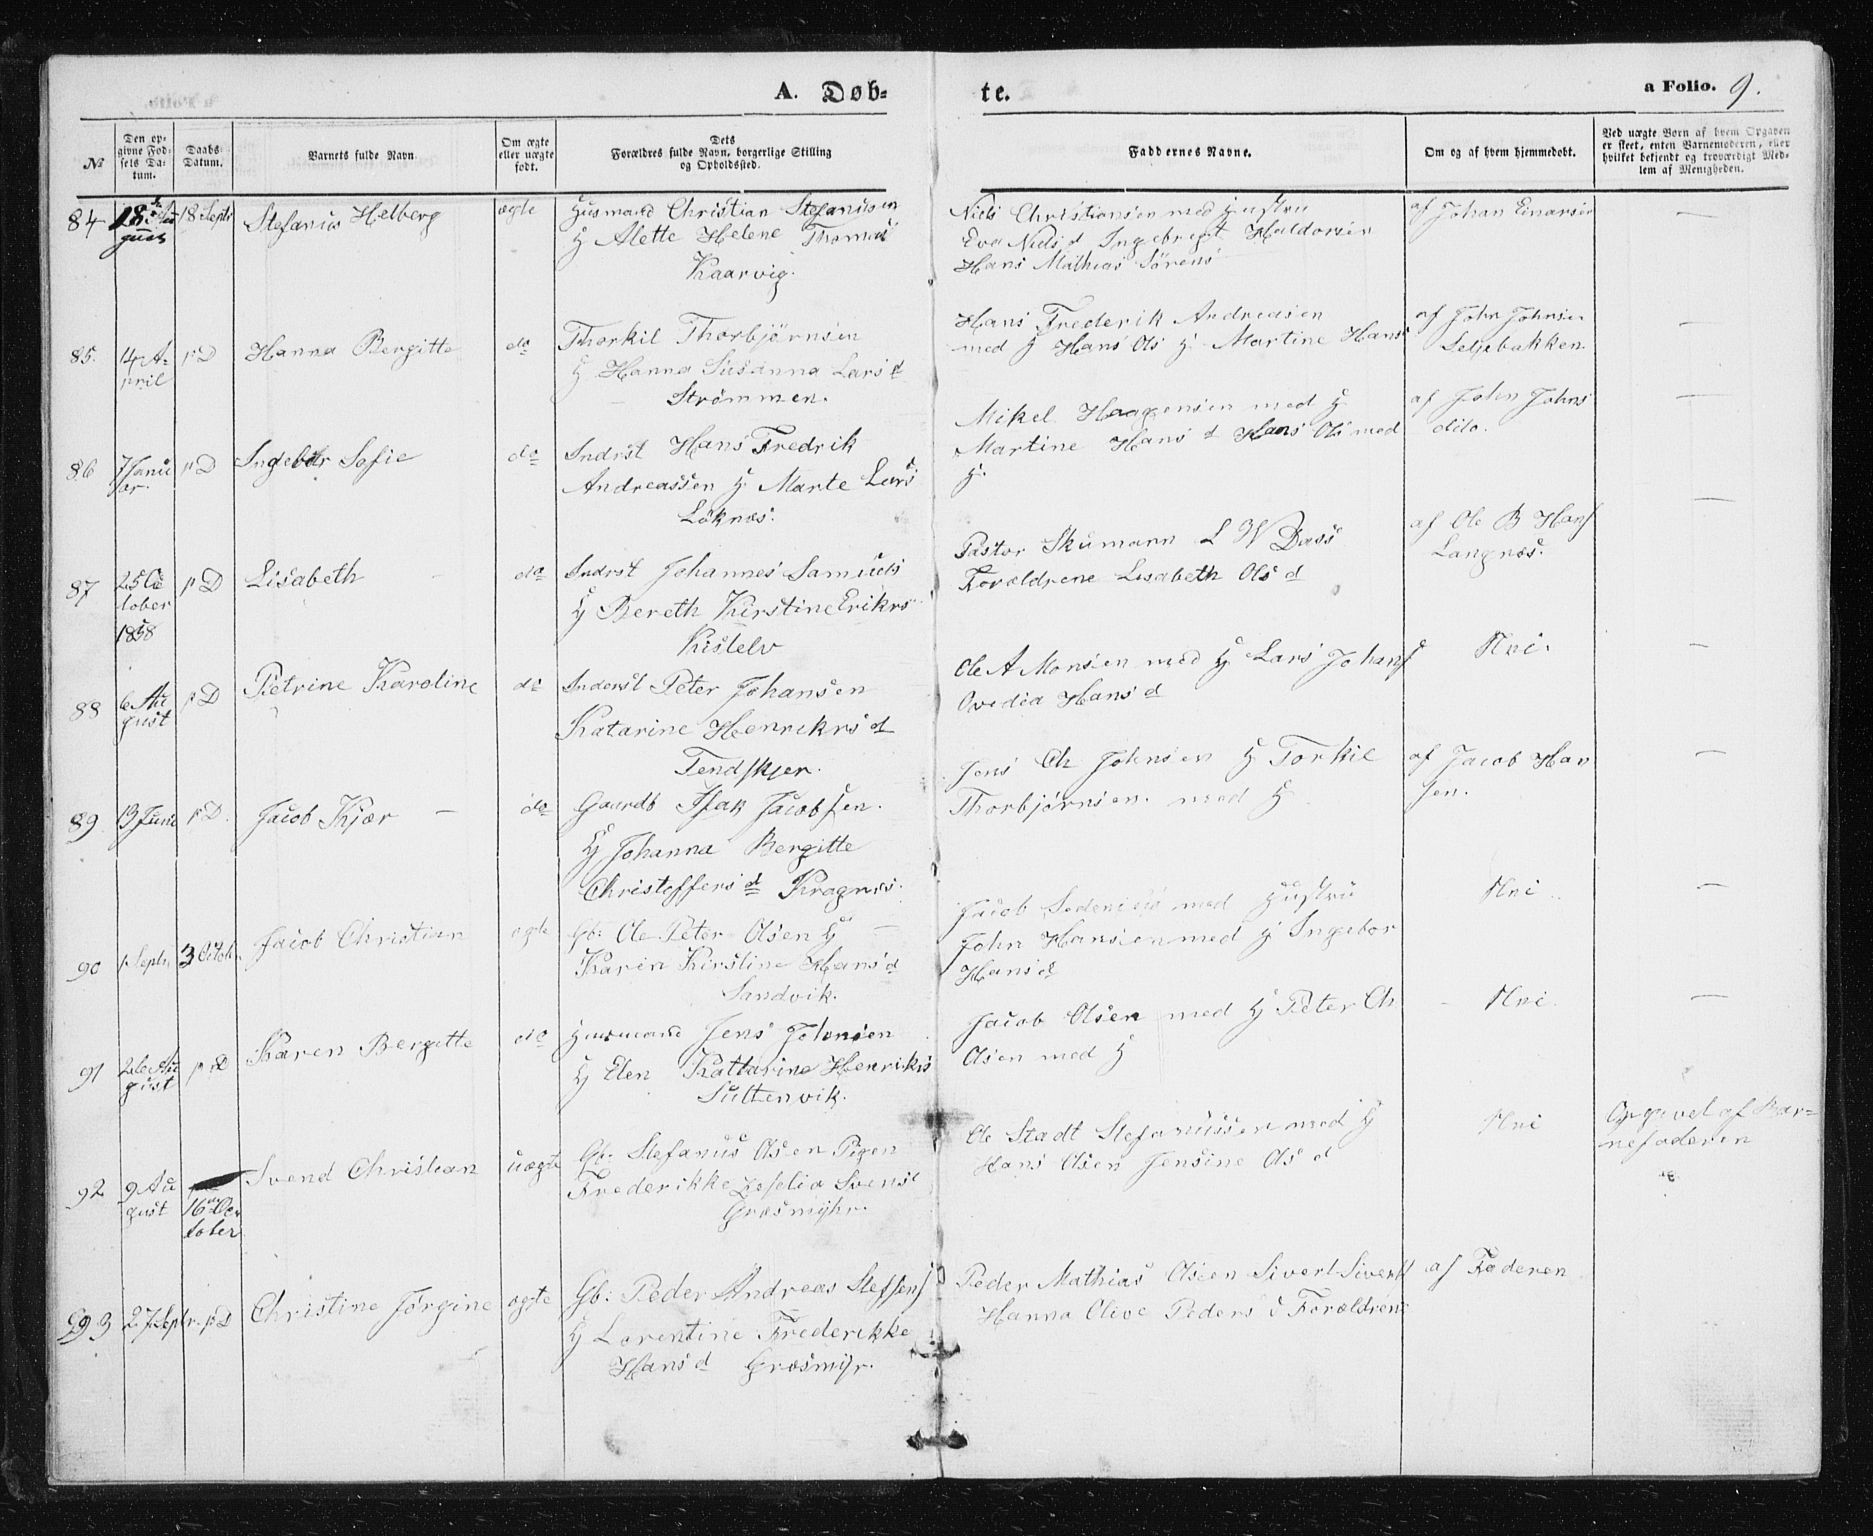 A. Døb-
te.
a Folio. 9.
№
Den op-
givne Fød-
sels Da-
tum.
Daabs-
Datum.
Barnets fulde Navn
Om ægte
eller uægte
født.
Dets
Forældres fulde Navn, borgerlige Stilling
og Opholdssted.
Faddernes Navne.
Om og af hvem hjemmedøbt.
Ved uægte Børn af hvem Opgaven
er skeet, enten Barnemoderen, eller
hvilket bekjendt og troværdigt Med-
lem af Menigheden.
84 18 Au 18 Septr Stefanus Helberg ægte Husmand Christian Stefanusen
gust
H Alette Helene Thomas
Kaarvig.
Niels Christiansen med Hustru
Eva Niels d Ingebregt Haldorsen
Hans Mathias Sørens
af Johan Einarsen
—
85. 14 A- p D Hanna Bergitte do Thorkil Thorbjørnsen
pril
H Hanna Susanna Lars d
Strømmen.
Hans Frederik Andreasen
med H Hans Ols H Martine Hans
af John Johnsen
Seljebakken
—
86 7 Janu p D Ingebor Sofie do Indrst Hans Fredrik
ar.
Andreassen H Marte Lars
Løknæs.
Mikel Haagensen med H
Martine Hans d Hans Ols med
H.
af John Johns
dito.
—
87 25 Oc p D Lisabeth do Indrst Johannes Samuels
tober
1858
H Bereth Kirstine Erikrs
Kistelv
Pastor Skumann L W Dass
Forældrene Lisabeth Ols d
af Ole B Hans
Langnæs.
—
88 6 Au p D Petrine Karoline do Inderst Peter Johansen
gust
Katarine Henrikrs d
Tendskjer.
Ole A Monsen med H Lars Johans
Ovedia Hans d
Nei.
—
89 13 Juni p D. Jacob Kjær — do Gaardb Isak Jacobsen.
H Johanna Bergitte
Christoffers d Kragnes.
Jens Ch Johnsen H Torkil
Thorbjørnsen. med H
af Jacob Han
sen.
—
90 1 Septr 3 Octob. Jacob Christian ægte Gb: Ole Peter Olsen H —
Karen Kirstine Hans d
Sandvik.
Jacob med Hustru
John Hansen med H Ingebor
Hans d
Nei
—
91 26 Au p D Karen Bergitte do Husmand Jens Johnsen
gust
H Elen Kattarine Henriks
Sultenvik.
Jacob Olsen med H Peter Ch
Olsen med H
Nei.
—
92 9 Au Svend Christian uægte Gb: Stefanus Olsen Pigen
gust 16 Oc
tober
Frederikke Svens
Græsmyhr.
Ole Stadt Stefanussen med H
Hans Olsen Jensine Ols d
Nei
Opgivet af Bar-
nefaderen
93 27 Septr. p D Christine Jørgine ægte Gb: Peder Andreas Steffens
H Lorentine Frederikke
Hans d Græsmyr.
Peder Mathias Olsen Sivert Siverts
Hanna Olive Peders d Forældrene
af Faderen